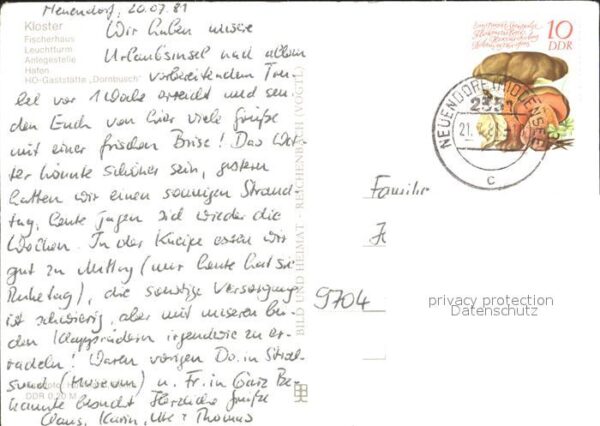 Neuendorf, 20.07.81
Kloster
Fischerhaus
Leuchtturm
Anlegestelle
Hafen
HO-Gaststätte „Dornbusch"
Wir haben unsere
Urlaubsinsel nach allem
vorbereitendem Tru-
bel vor 1 Woche erreicht und sen-
den Euch von hier viele Grüße
mit einer frischen Brise! Das Wet-
ter könnte schöner sein, gestern
hatten wir einen sonnigen Strand-
tag, heute jagen sich wieder die
Wolken. In der Kneipe essen wir
gut zu Mittag (nur heute hat sie
Ruhetag), die sonstige Versorgung
ist schwierig, aber mit unseren bei-
den Klapprädern irgendwie zu er-
radeln! Waren vorigen Do. in Stral-
sund (Museum) u. Fr. in Garz Be-
kannte besucht Herzliche Grüße
Claus, Karin, Ute + Thomas
DDR 0,20 M
BILD UND HEIMAT · REICHENBACH (VOGTL)
10
DDR
NEUENDORF (HIDDENSEE)
2351
c
Familie
9704
privacy protection
Datenschutz